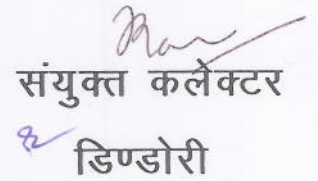 संयुक्त कलेक्टर
डिण्डोरी